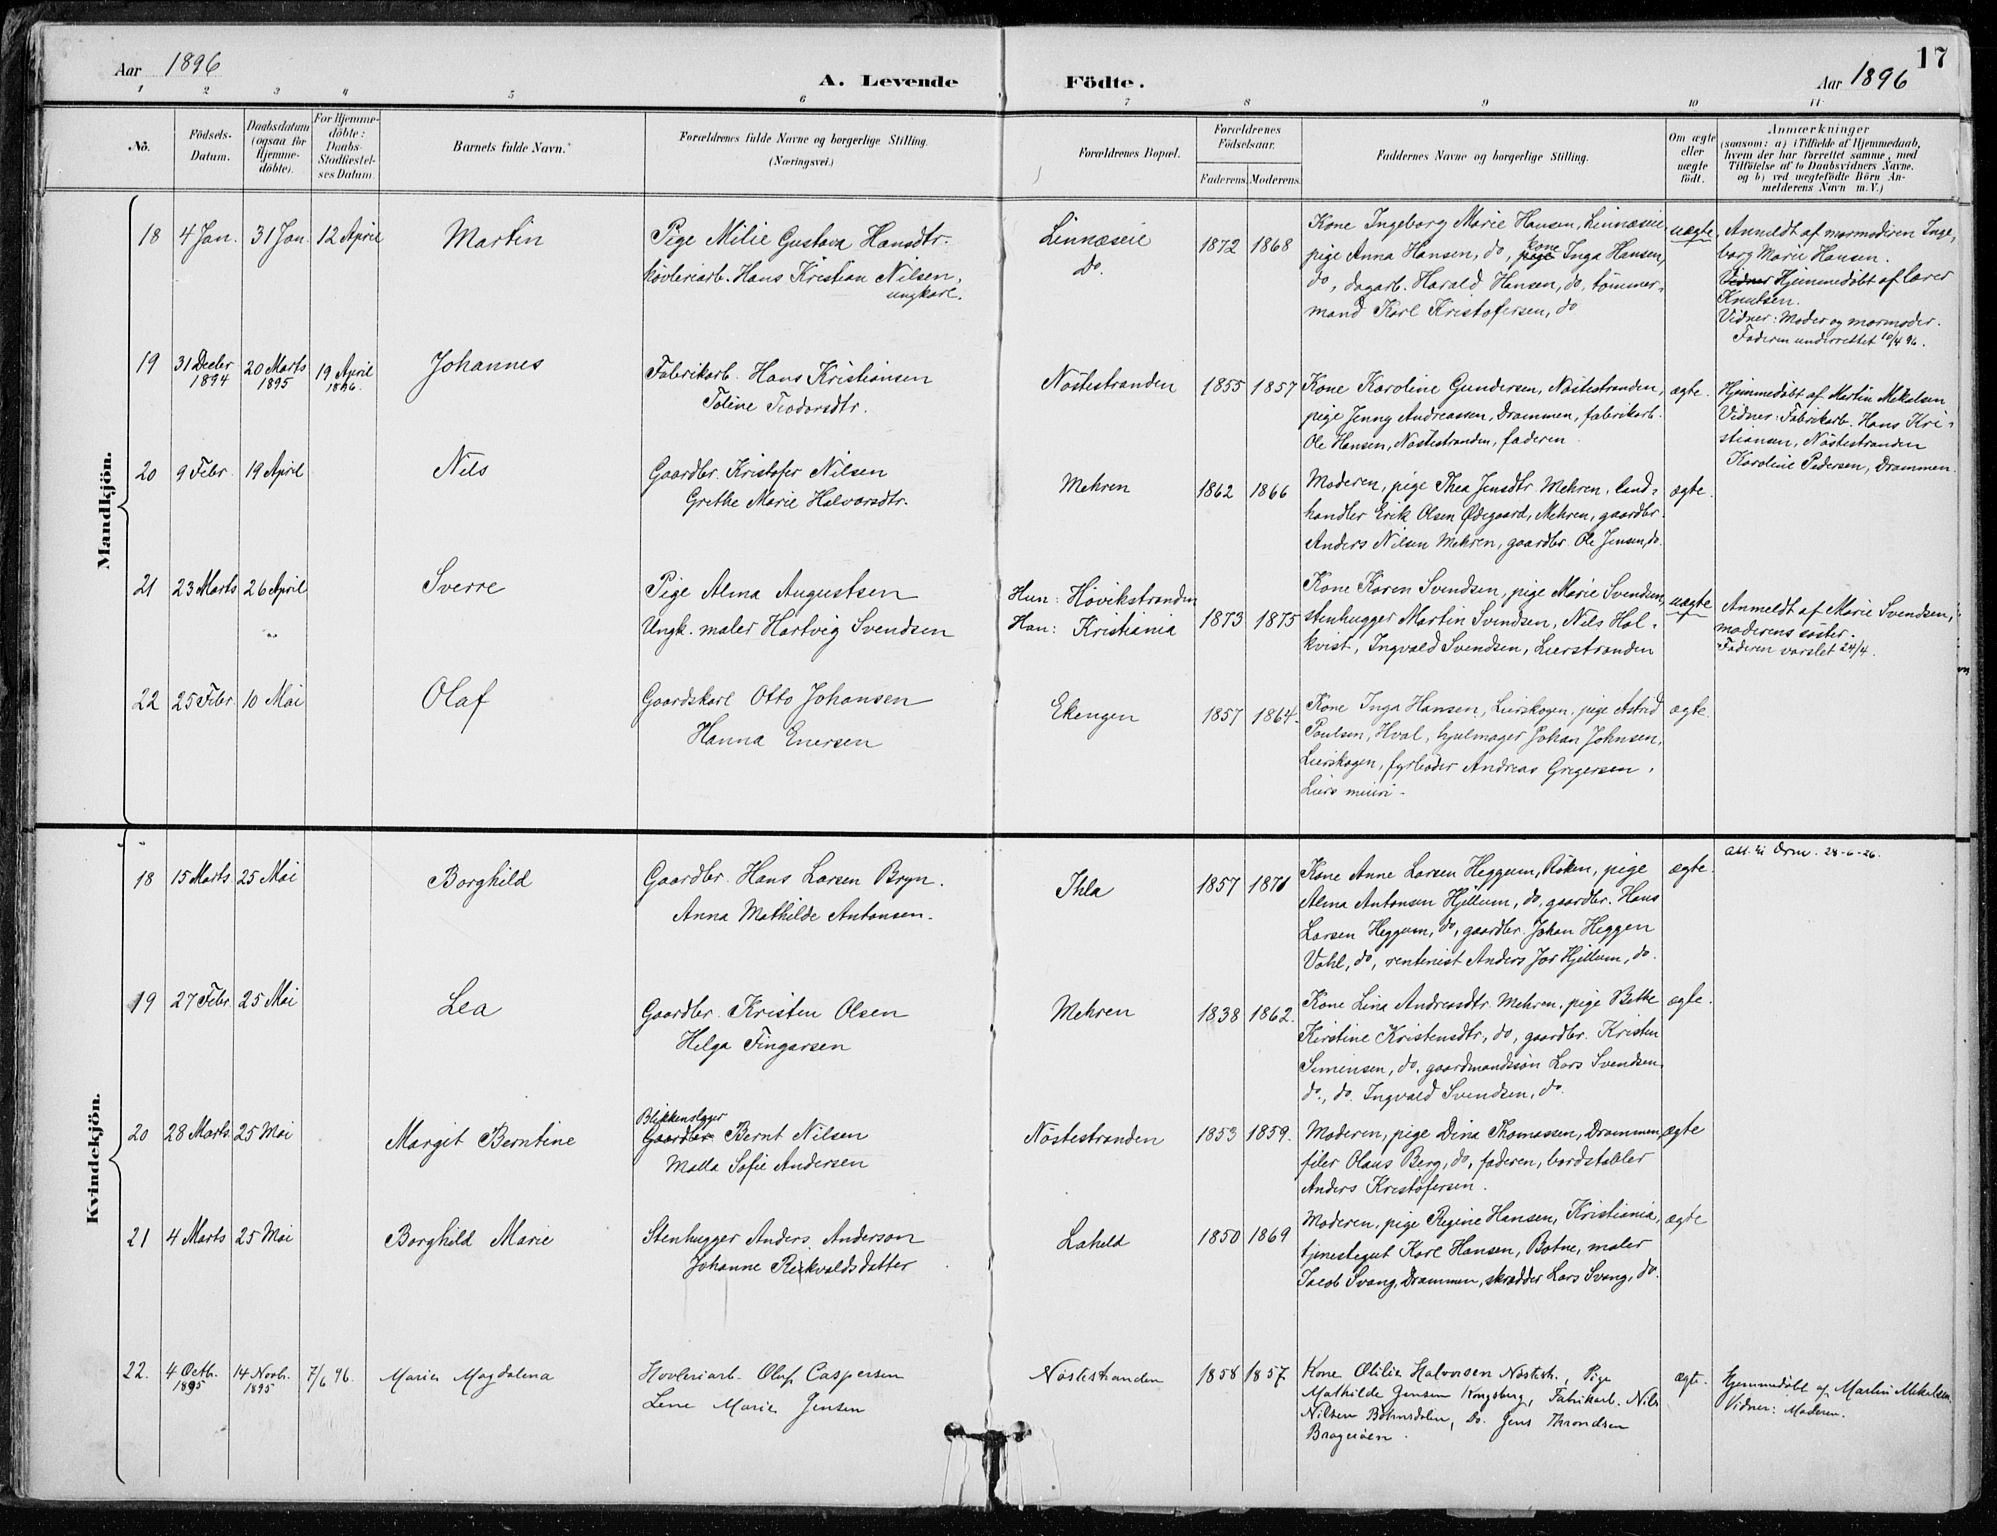 17
Aar 1896
A. Levende Födte.
Aar 1896
1 2 3 4 5 6 7 8 9 10 11
No.
Födsels-
Datum.
Daabsdatum
(ogsaa for
Hjemme-
döbte).
For Hjemme-
döbte:
Daabs-
Stadfæstel-
ses Datum.
Barnets fulde Navn.
Forældrenes fulde Navne og borgerlige Stilling.
(Næringsvei.)
Forældrenes Bopæl.
Forældrenes
Födselsaar.
Faderens. Moderens.
Faddernes Navne og borgerlige Stilling.
Om ægte
eller
uægte
födt.
Anmærkninger
(saasom: a) i Tilfælde af Hjemmedaab,
hvem der har forrettet samme, med
Tilföielse af to Daabsvidners Navne.
og b) ved uægtefödte Börn An-
melderens Navn m. V.)
Mandkjön.
18 4 Jan. 31 Jan. 12 April
Martin
Pige Milie Gustava Hansdtr.
høvleriarb. Hans Kristian Nilsen,
ungkarl.
Linnæseie
do.
1872 1868
Kone Ingeborg Marie Hansen, Linnæseie
pige Anna Hansen, do, pige kone Inga Hansen,
do, dagarb. Harald Hansen, do, tømmer-
mand Karl Kristofersen, do
uægte
Anmeldt af mormoderen Inge-
borg Marie Hansen.
Vidner Hjemmedøbt af lærer
Knutsen.
Vidner: Moder og mormoder.
Faderen underrettet 10/4 96.
19 31 Decbr 1894 20 Marts 1895 19 April 1896
Johannes
Fabrikarb. Hans Kristiansen
Toline Teodorsdtr.
Nøstestranden
1855 1857
Kone Karoline Gundersen, Nøstestranden,
pige Jenny Andreassen, Drammen, fabrikarb.
Ole Hansen, Nøstestranden, faderen
ægte.
Hjemmedøbt af Martin Mikelsen
Vidner: Fabrikarb. Hans Kri-
stiansen, Nøstestranden
Karoline Pedersen, Drammen.
20 9 Febr. 19 April
Nils
Gaardbr. Kristofer Nilsen
Grethe Marie Halvorsdtr.
Mehren
1862 1866
Moderen, pige Thea Jensdtr. Mehren, land-
handler Erik Olsen Ødegaard, Mehren, gaardbr.
Anders Nilsen Mehren, gaardbr. Ole Jensen, do.
ægte.
21 23 Marts 26 April
Sverre
Pige Alma Augustsen
Ungk. maler Hartvig Svendsen
Hun: Høvikstranden
Han: Kristiania
1873 1875
Kone Karen Svendsen, pige Marie Svendsen,
stenhugger Martin Svendsen, Nils Hol-
kvist, Ingvald Svendsen, Lierstranden
uægte
Anmeldt af Marie Svendsen,
moderens søster.
Faderen varslet 24/4.
22 25 Febr. 10 Mai
Olaf
Gaardskarl Otto Johansen
Hanna Enersen
Ekengen
1857 1864.
Kone Inga Hansen, Lierskogen, pige Astrid
Poulsen, Hval, hjulmager Johan Johnsen,
Lierskogen, fyrbøder Andreas Gregersen,
Liers meieri.
ægte
Kvindekjön.
18 15 Marts 25 Mai
Borghild
Gaardbr. Hans Larsen Bryn.
Anna Mathilde Antonsen.
Ihla
1857 1871
Kone Anne Larsen Heggum, Røken, pige
Alma Antonsen Hjellum, do, gaardbr. Hans
Larsen Heggum, do, gaardbr. Johan Heggen
Vahl, do, rentenist Anders Jor Hjellum, do.
ægte.
Att. 28-6-26.
19 27 Febr. 25 Mai
Lea
Gaardbr. Kristen Olsen
Helga Fingarsen
Mehren
1838 1862.
Kone Lina Andreasdtr. Mehren, pige Bethe
Kirstine Kristensdtr, do, gaardbr. Kristen
Simensen, do, gaardmandssøn Lars Svendsen
do., do. Ingvald Svendsen, do.
ægte.
20 28 Marts. 25 Mai
Margit Berntine
Blikkenslager
Gaardbr Bernt Nilsen
Malla Sofie Andersen
Nøstestranden
1853 1859.
Moderen, pige Dina Thomassen, Drammen,
filer Olaus Berg, do, faderen, bordstabler
Anders Kristofersen.
ægte
21 4 Marts 25 Mai
Borghild Marie
Stenhugger Anders Anderson
Johanne Reikvaldsdatter
Laheld
1850 1869
Moderen, pige Regine Hansen, Kristiania,
tjenestegut Karl Hansen, Botne, maler
Jacob Svang, Drammen, skrædder Lars Svang, do.
ægte
22. 4 Octb. 1895 14 Novbr. 1895 7/6 96.
Marie Magdalena
Hovleriarb. Oluf Caspersen
Lene Marie Jensen
Nøstestranden
1858 1857
Kone Otilie Halvorsen Nøstestr., Pige
Mathilde Jensen Kongsberg, Fabrikarb. Nils
Nilsen Bøhmsdalen, Do. Jens Throndsen
Bragerøen.
ægte.
Hjemmedøbt af Martin Mikelsen.
Vidner: Moderen.